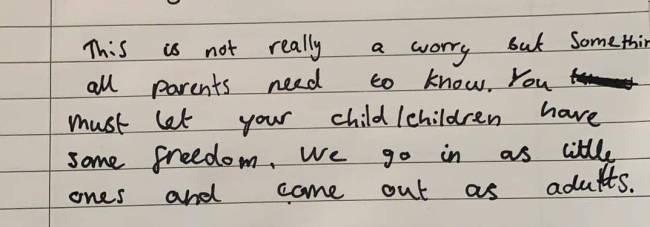 This is not really a worry but Somethin
all parents need to know. You
must let your child/children have
some freedom. We go in as little
ones and come out as adults.